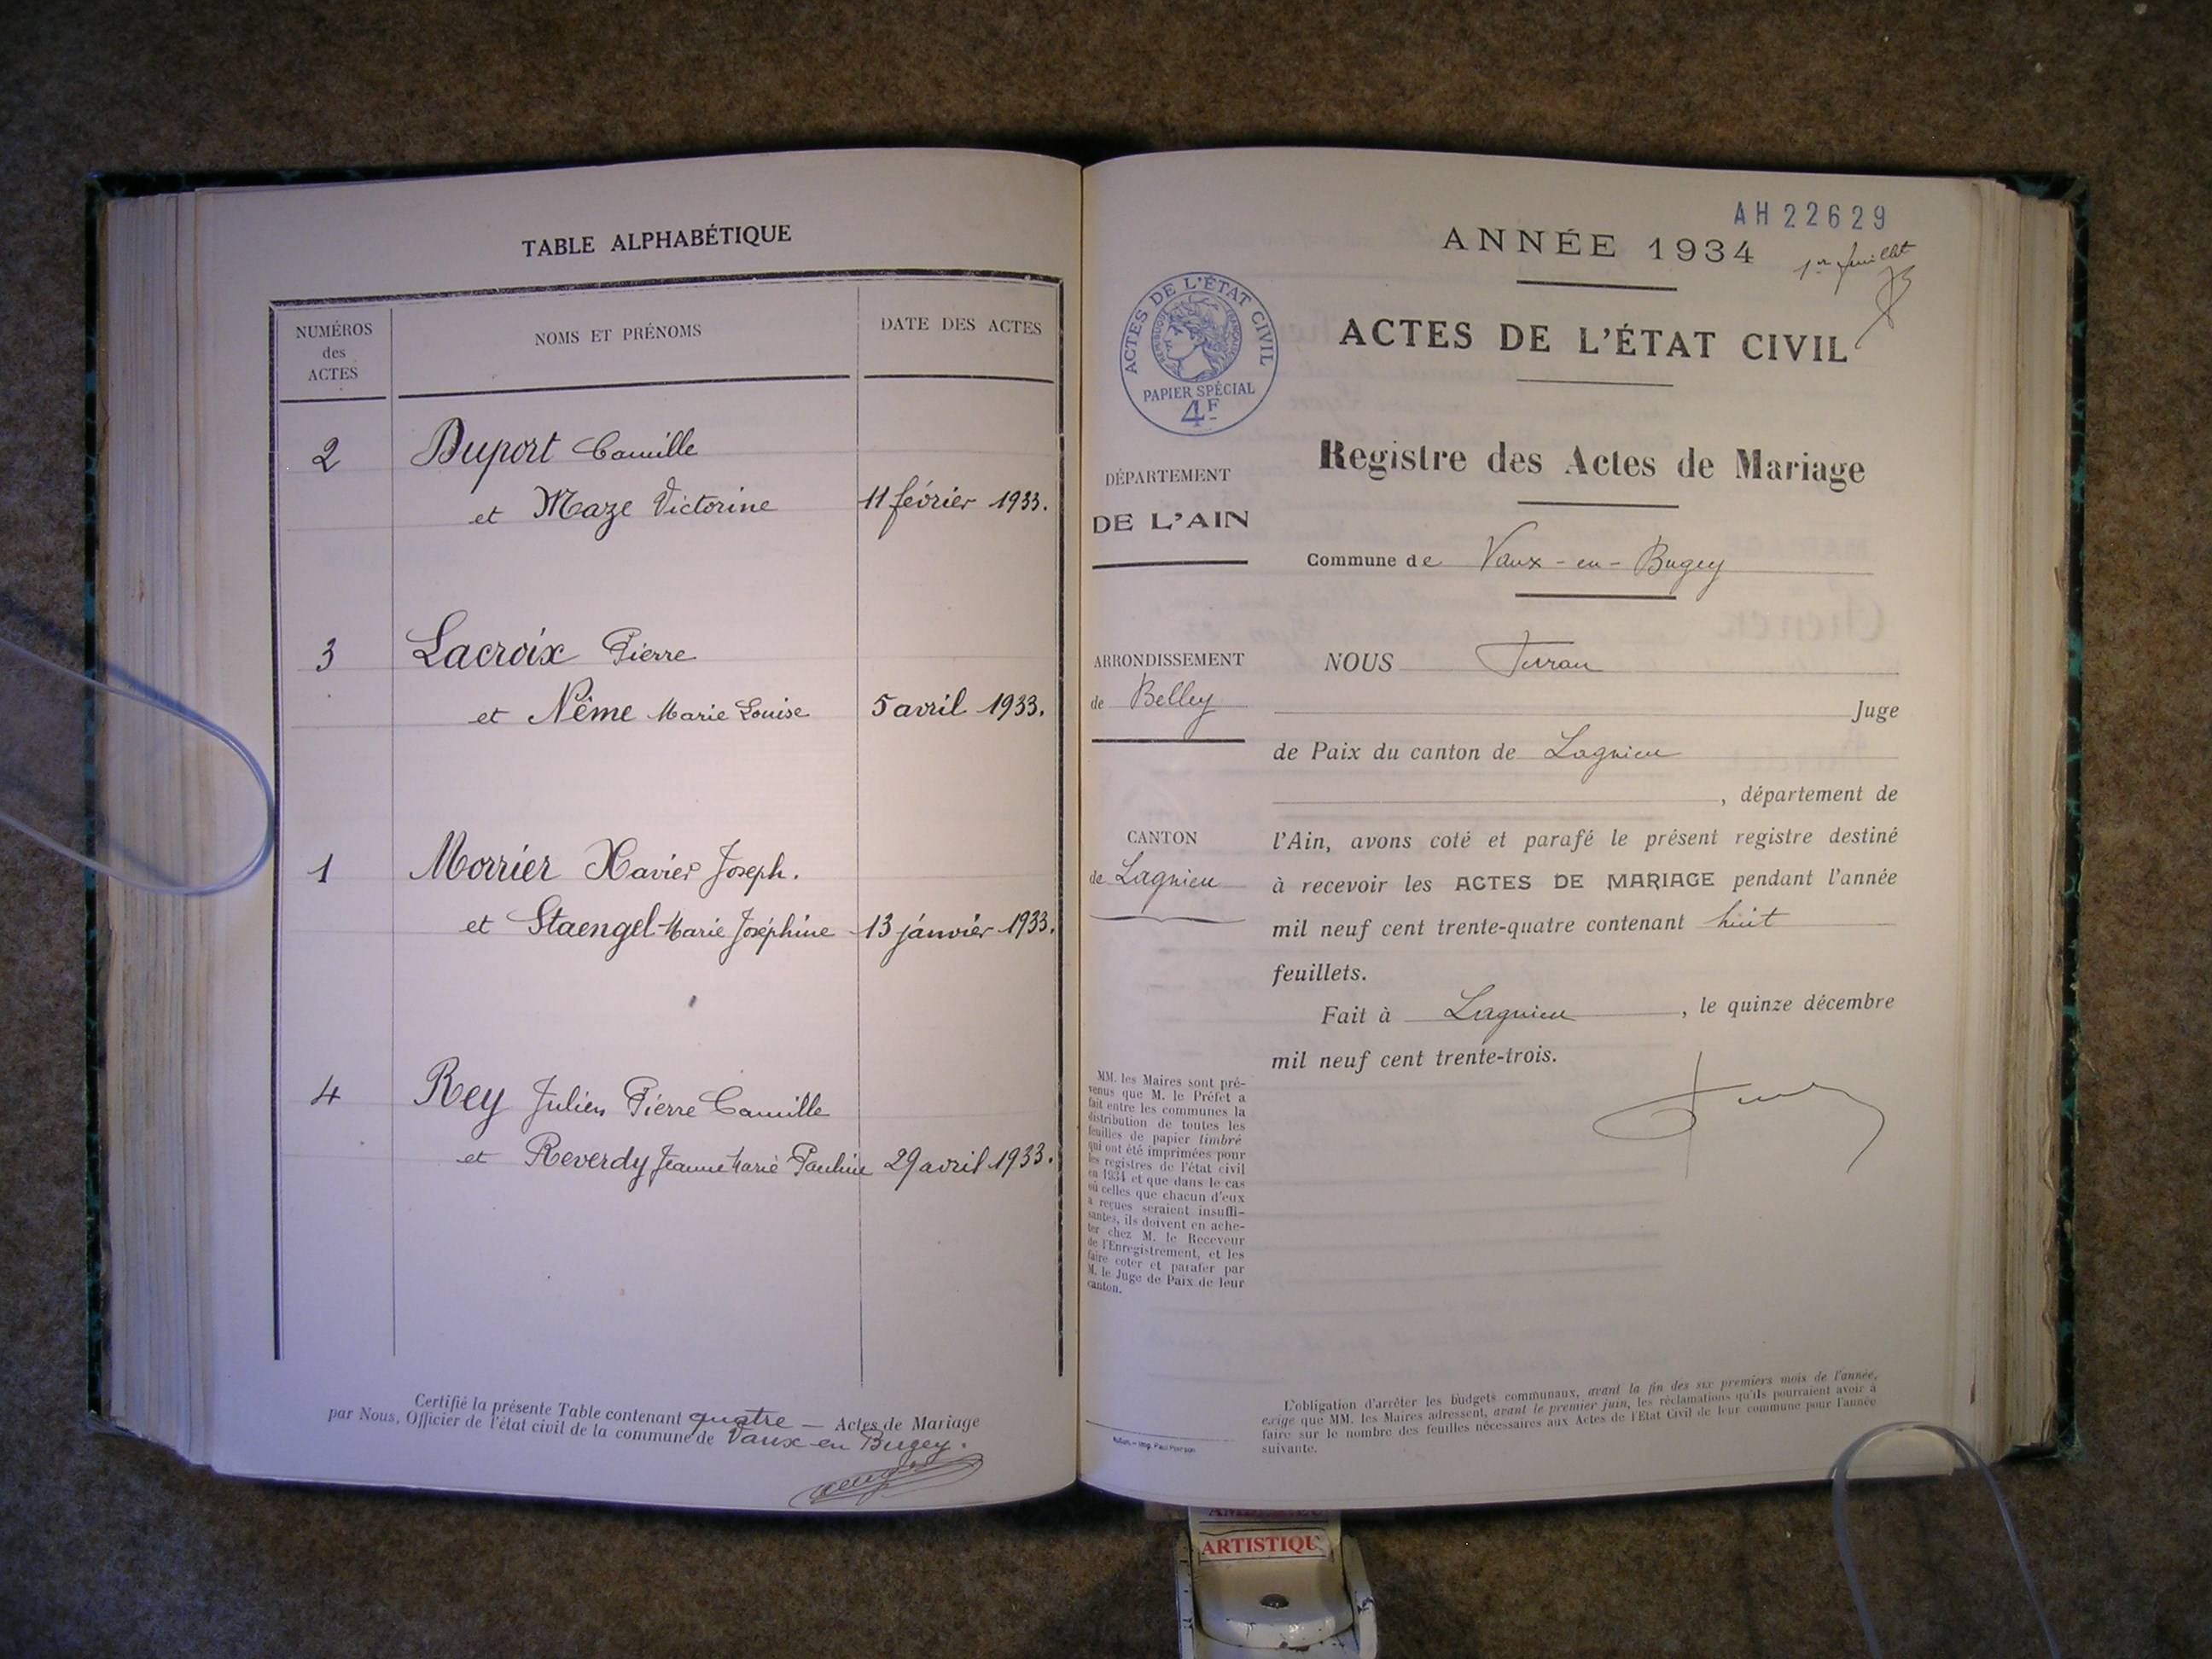 TABLE ALPHABÉTIQUE
NUMÉROS
des
ACTES
NOMS ET PRÉNOMS
DATE DES ACTES
2 Duport Camille
et Maze Victorine 11 février 1933.
3 Lacroix Pierre
et Nême Marie Louise 5 avril 1933.
1 Morrier Xavier Joseph.
et Staengel Marie Joséphine 13 janvier 1933.
4 Rey Julien Pierre Camille
et Reverdy Jeanne Marie Pauline 29 avril 1933.
Certifié la présente Table contenant quatre — Actes de Mariage
par Nous, Officier de l'état civil de la commune de Vaux-en Bugey.
AH 22629
ANNÉE 1934
1er feuillet
ACTES DE L'ÉTAT CIVIL
ACTES DE L'ÉTAT CIVIL
RÉPUBLIQUE FRANÇAISE
PAPIER SPÉCIAL
4F
Registre des Actes de Mariage
DÉPARTEMENT
DE L'AIN
Commune de Vaux-en-Bugey
ARRONDISSEMENT
de Belley
CANTON
de Lagnieu
MM. les Maires sont pré-
venus que M. le Préfet a
fait entre les communes la
distribution de toutes les
feuilles de papier timbré
qui ont été imprimées pour
les registres de l'état civil
en 1934 et que dans le cas
où celles que chacun d'eux
a reçues seraient insuffi-
santes, ils doivent en ache-
ter chez M. le Receveur
de l'Enregistrement, et les
faire coter et parafer par
M. le Juge de Paix de leur
canton.
NOUS
Juge
de Paix du canton de Lagnieu
, département de
l'Ain, avons coté et parafé le présent registre destiné
à recevoir les ACTES DE MARIAGE pendant l'année
mil neuf cent trente-quatre contenant huit
feuillets.
Fait à Lagnieu, le quinze décembre
mil neuf cent trente-trois.
L'obligation d'arrêter les budgets communaux, avant la fin des six premiers mois de l'année,
exige que MM. les Maires adressent, avant le premier juin, les réclamations qu'ils pourraient avoir à
faire sur le nombre des feuilles nécessaires aux Actes de l'Etat Civil de leur commune pour l'année
suivante.
ARTISTIQU